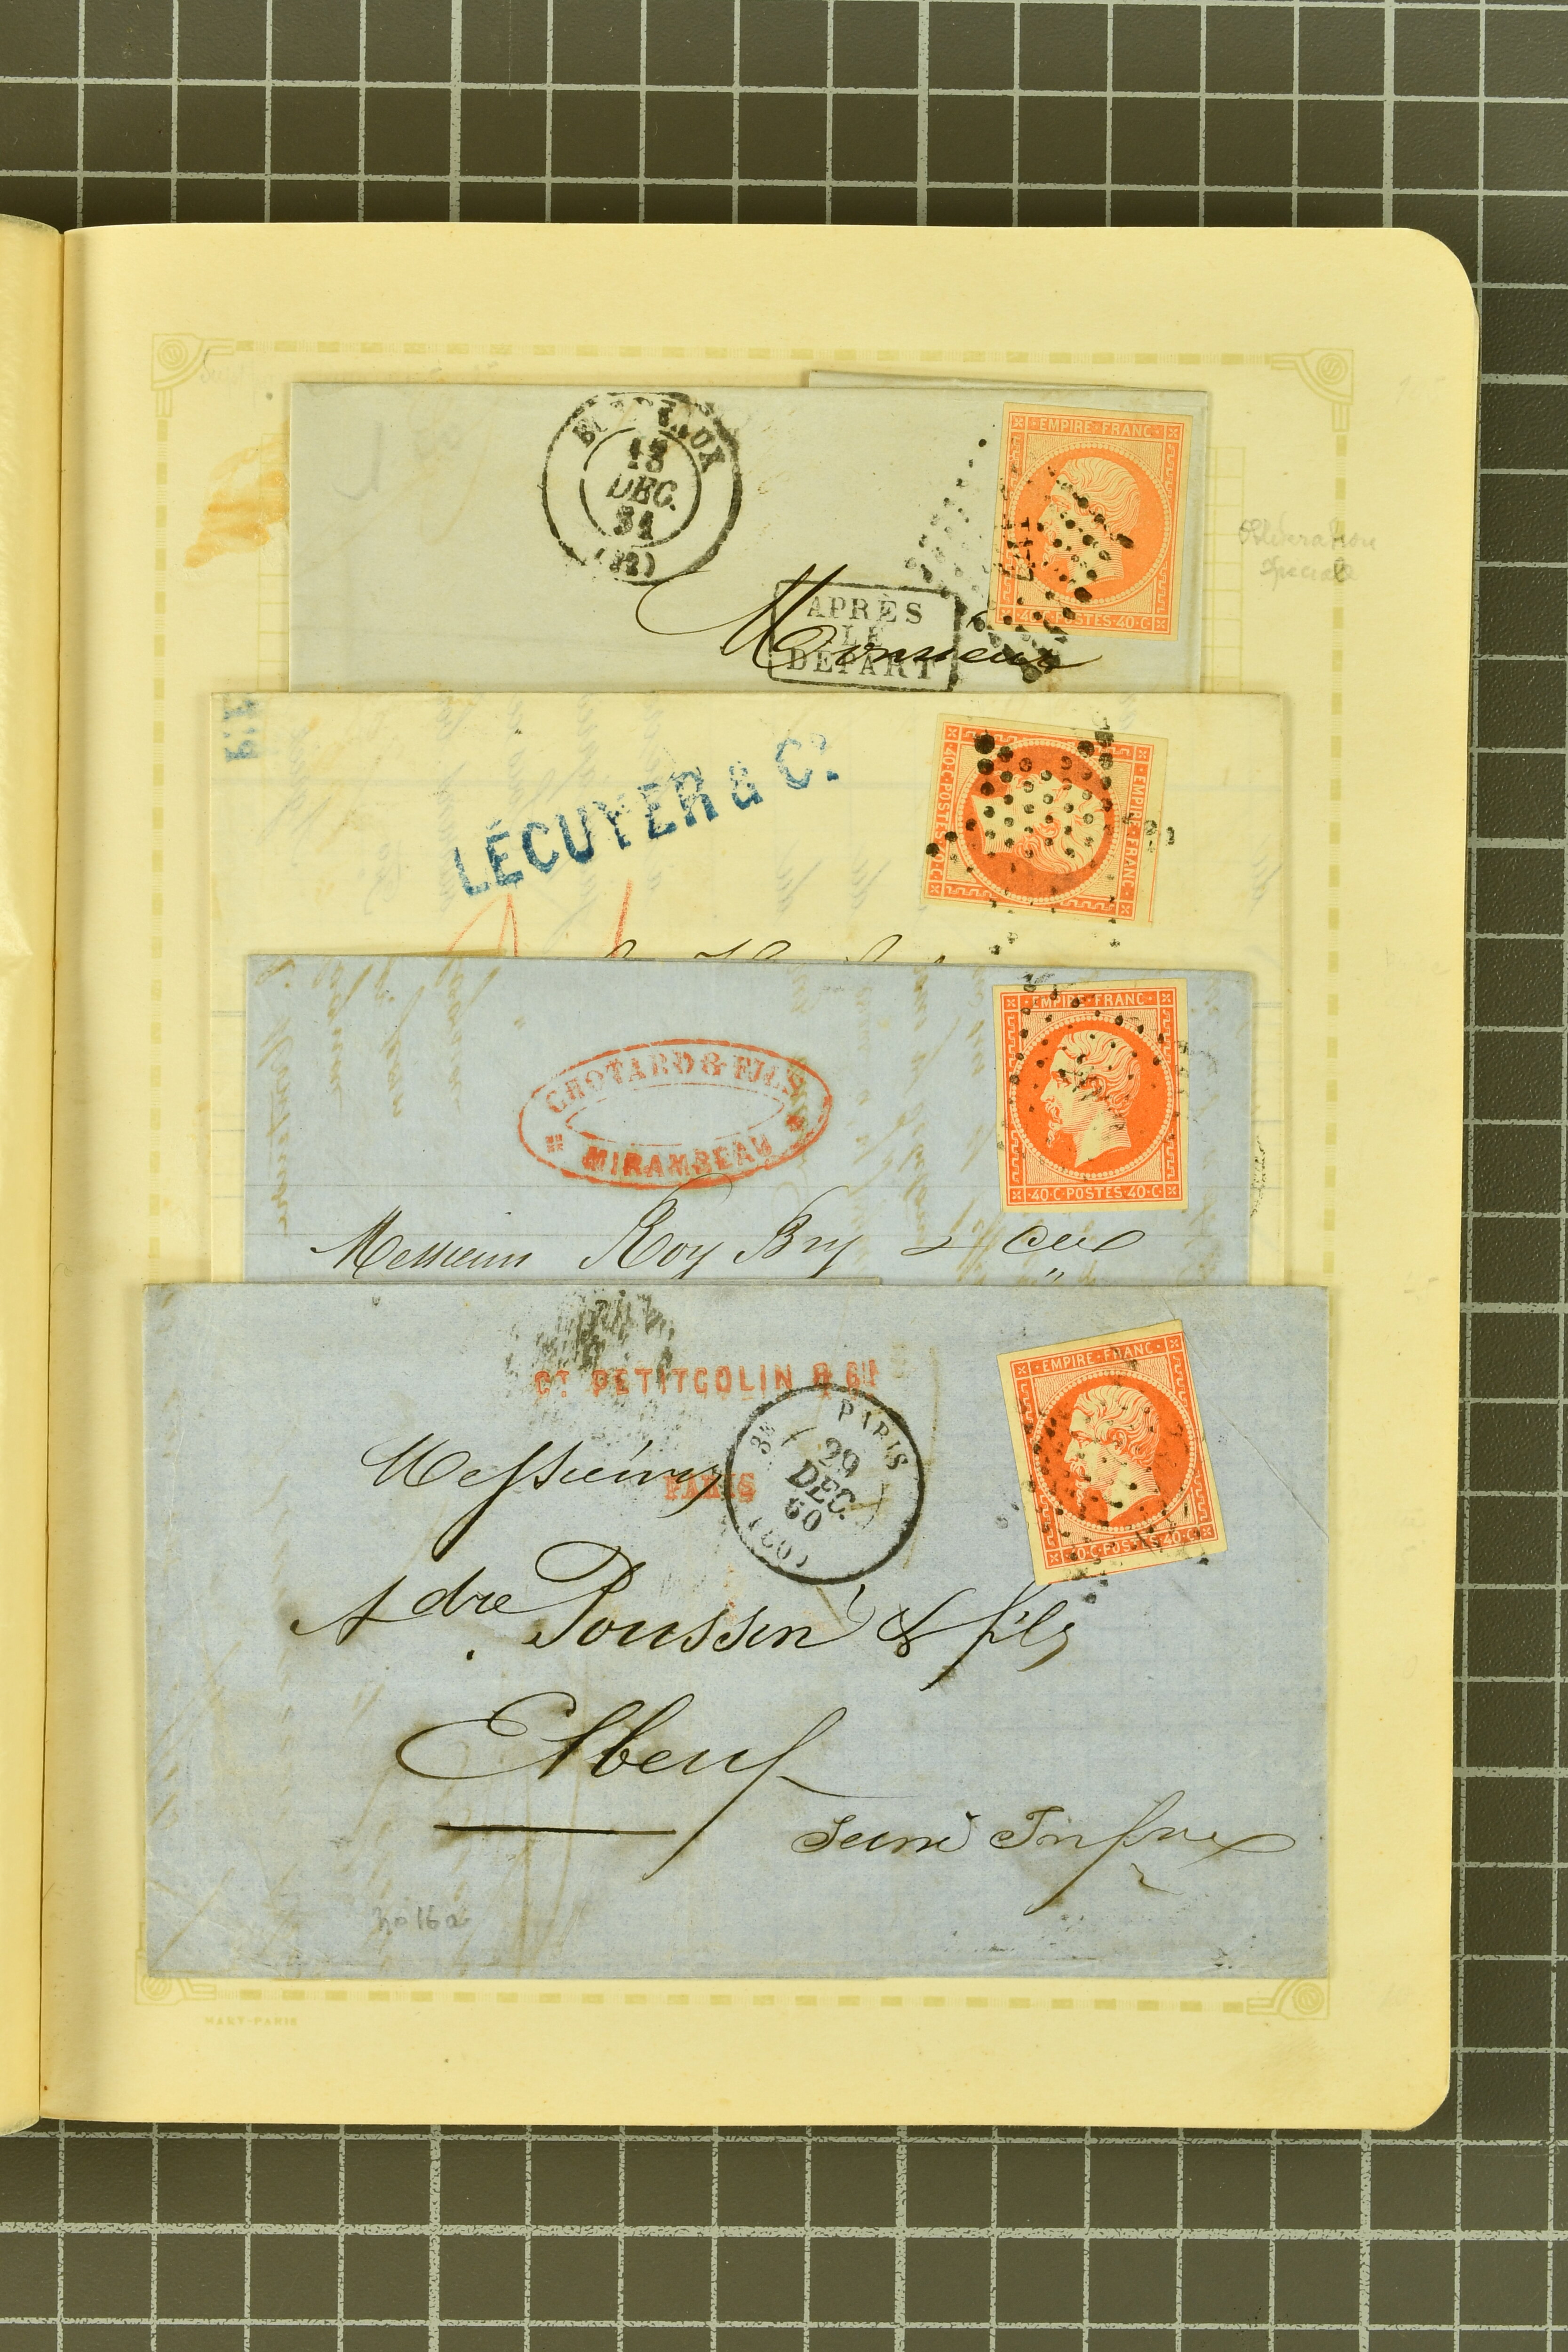 BORDEAUX
18
DEC.
(32)
EMPIRE·FRANC·
40·C·POSTES·40·C
APRÈS
LE
DÉPART
Monsieur
LÉCUYER & Cⁱᵉ
EMPIRE·FRANC·
40·C·POSTES 40·C
EMPIRE·FRANC·
40·C·POSTES 40·C
CHOTARD & FILS
MIRAMBEAU
Messieurs Roy Bry & Cie
EMPIRE·FRANC·
40·C·POSTES·40·C
Cᵀ. PETITCOLIN & Cⁱᴱ
PARIS
PARIS
29
DEC.
60
(60)
Messieurs
Adre Poussin & fils
Elbeuf
Seine Infre
no 16a
MAURY-PARIS